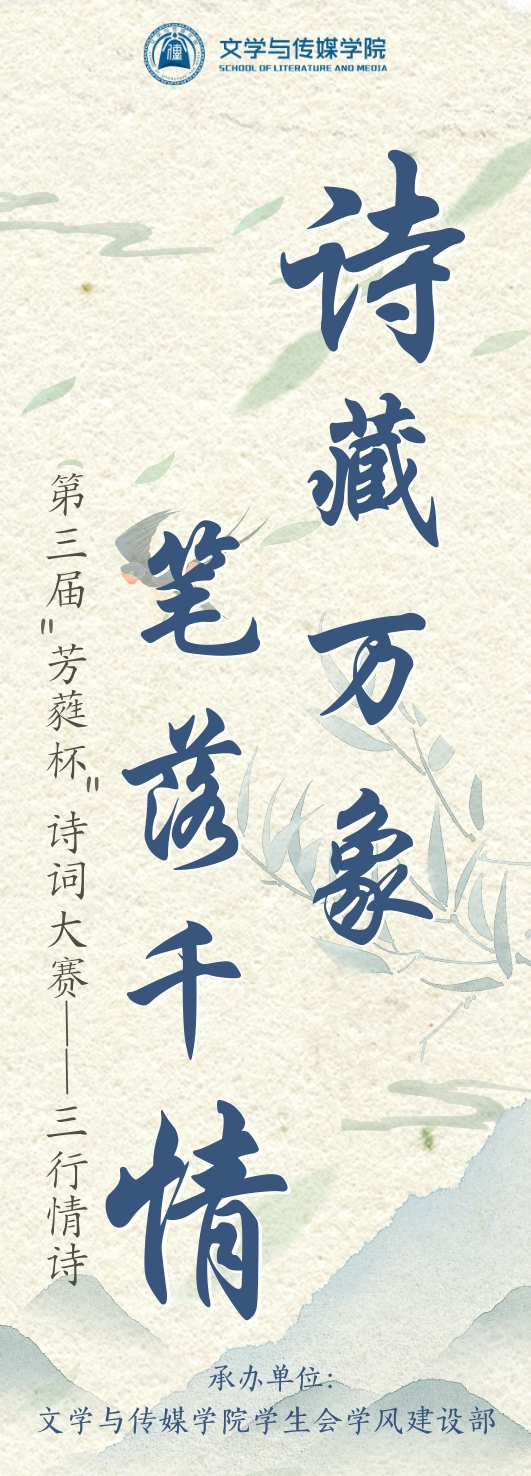 文学与传媒学院
SCHOOL OF LITERATURE AND MEDIA
诗藏万象
笔落千情
第三届"芳蕤杯"诗词大赛——三行情诗
承办单位:
文学与传媒学院学生会学风建设部